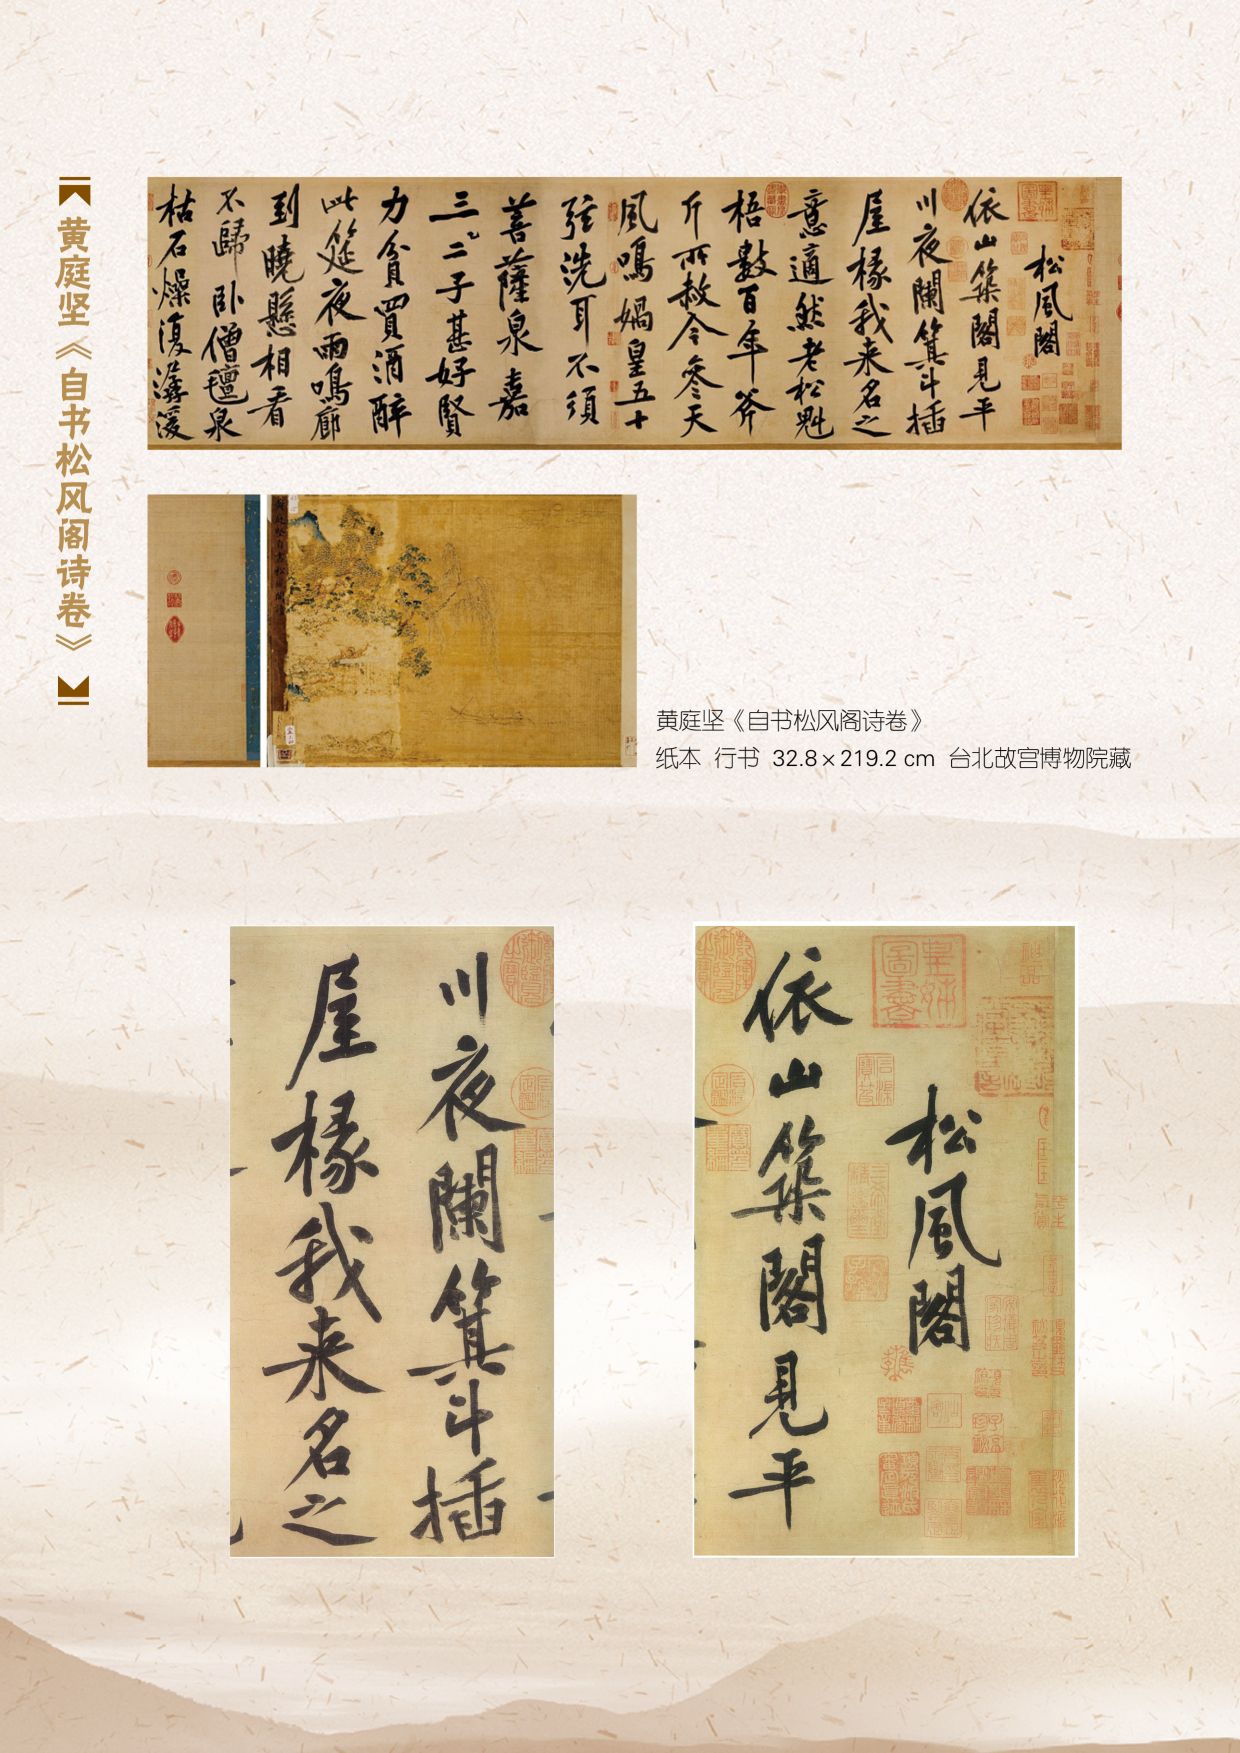 黄庭坚《自书松风阁诗卷》
松風閣
依山築閣見平
川夜闌箕斗插
屋椽我来名之
意適然老松魁
梧數百年斧
斤所赦今參天
風鳴媧皇五十
弦洗耳不須
菩薩泉嘉
三二子甚好賢
力貧買酒醉
此筵夜雨鳴廊
到曉懸相看
不歸卧僧氊泉
枯石燥復潺湲
黄庭坚《自书松风阁诗卷》
纸本 行书 32.8×219.2 cm 台北故宫博物院藏
松風閣
依山築閣見平
川夜闌箕斗插
屋椽我来名之